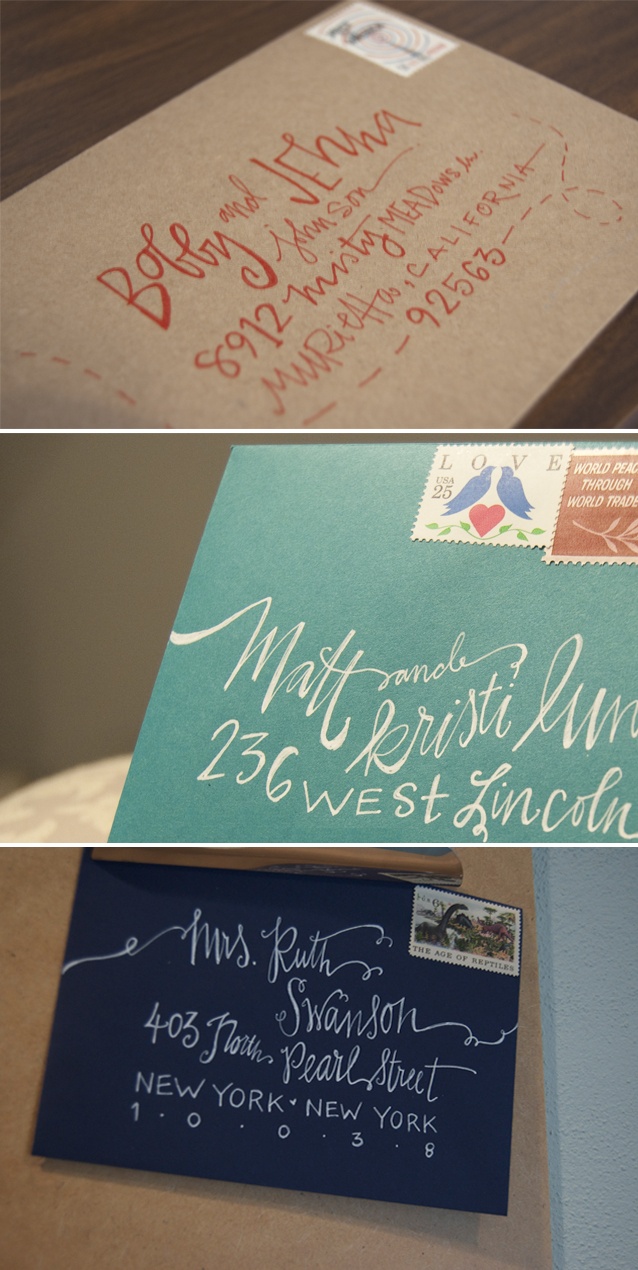 Bobby and JENNA
Johnson
8912 Misty MEADOWS Ln.
MURiEttas, CALIFORNIA
92563
LOVE
USA
25
WORLD PEAC
THROUGH
WORLD TRADE
Matt and
kristi lun
236 WEST Lincoln
6c
THE AGE OF REPTILES
Mrs. Ruth
Swanson
403 North Pearl Street
NEW YORK · NEW YORK
1 · 0 · 0 · 3 · 8